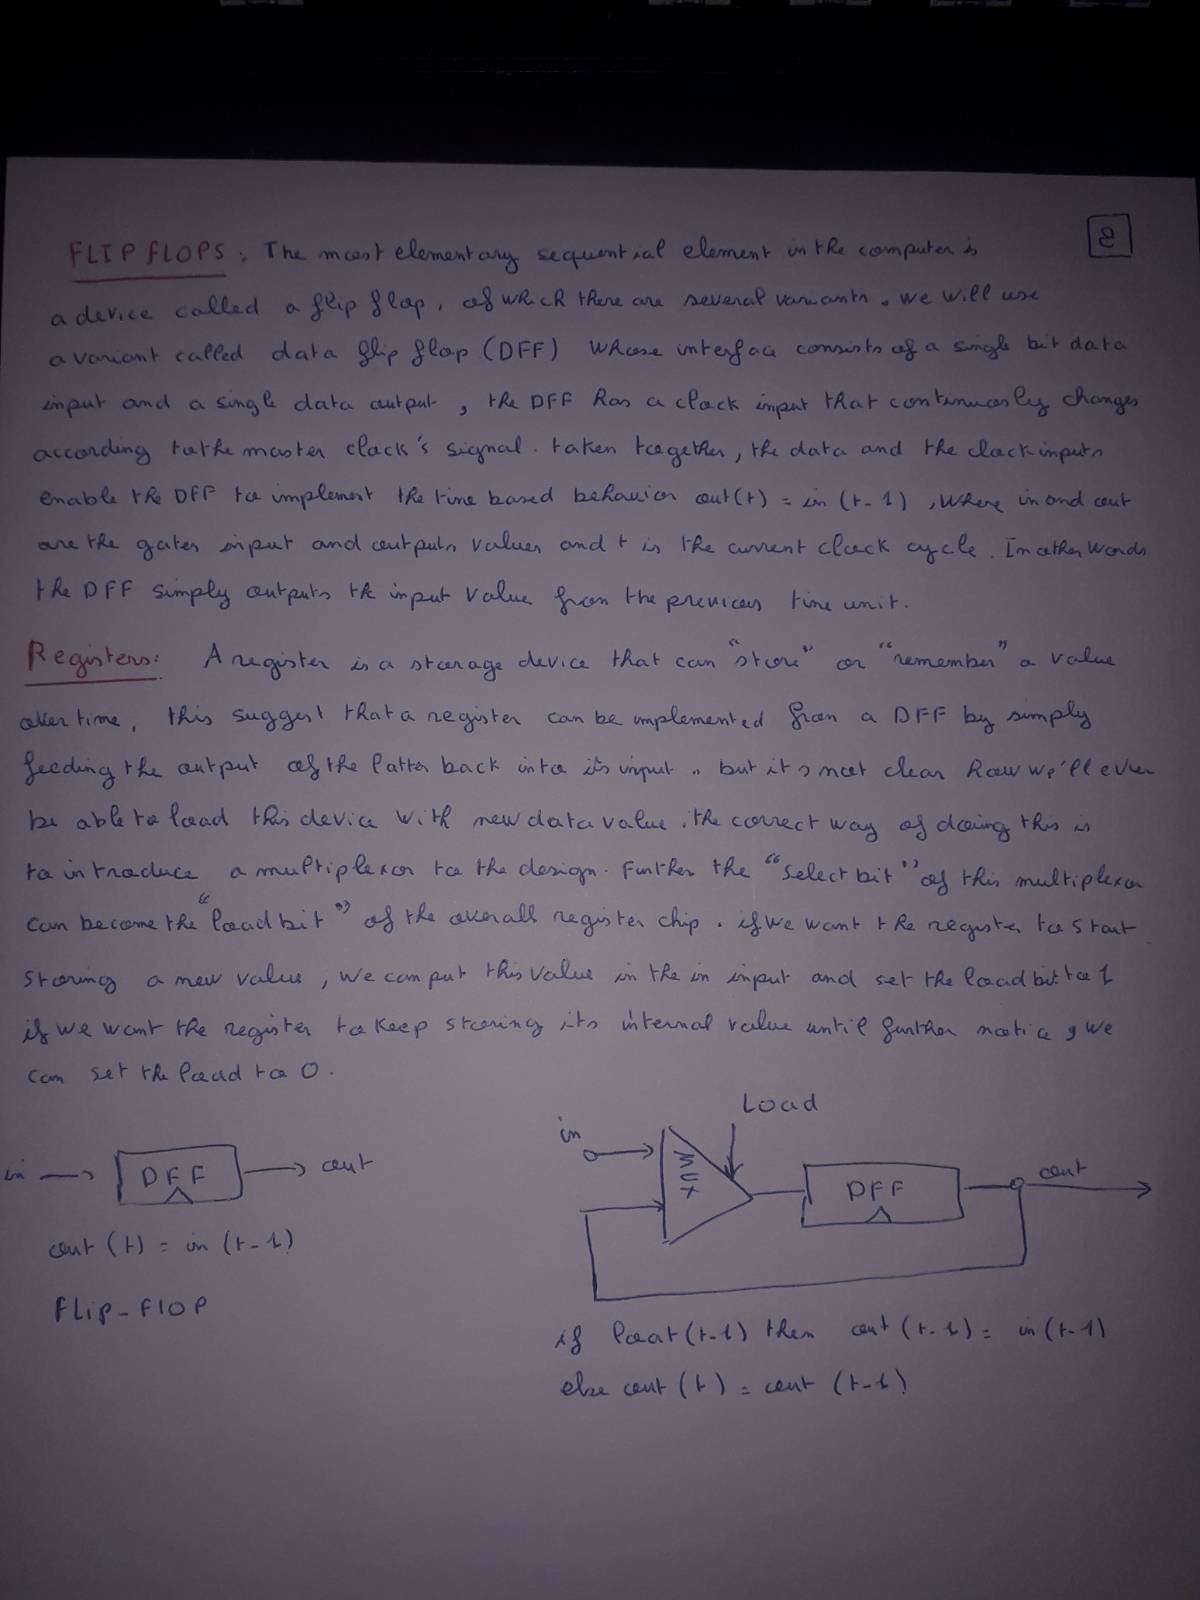 2
FLIP FLOPS : The most elementary sequential element in the computer is
a device called a flip flop, of which there are several variants. we will use
a variant called data flip flop (DFF) whose interface consists of a single bit data
input and a single data output, the DFF has a clock input that continuously changes
according to the master clock's signal. taken together, the data and the clock inputs
enable the DFF to implement the time based behavior out(t) = in (t-1), where in and out
are the gates input and outputs values and t is the current clock cycle. In other words
the DFF simply outputs the input value from the previous time unit.
Registers: A register is a storage device that can "store" or "remember" a value
over time, this suggest that a register can be implemented from a DFF by simply
feeding the output of the latter back into its input.. but it's not clear how we'll ever
be able to load this device with new data value. the correct way of doing this is
to introduce a multiplexor to the design. Further the "select bit" of this multiplexor
can become the "load bit" of the overall register chip. if we want the register to start
storing a new value, we can put this value in the in input and set the load bit to 1
if we want the register to keep storing its internal value until further notice, we
can set the load to 0.
in DFF out
out (t) = in (t-1)
Flip-Flop
Load
in MUX DFF out
if loat(t-1) then out (t-1) = in (t-1)
else out (t) = out (t-1)